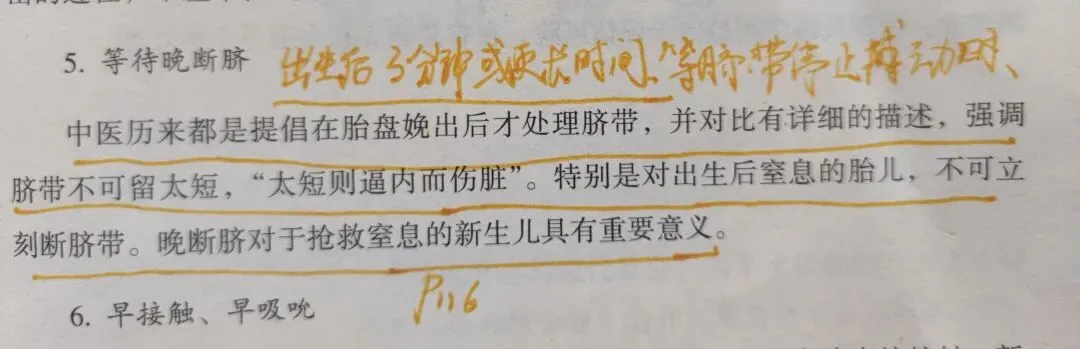 5. 等待晚断脐 出生后3分钟或更长时间、等脐带停止搏动时、
中医历来都是提倡在胎盘娩出后才处理脐带，并对比有详细的描述，强调
脐带不可留太短，“太短则逼内而伤脏”。特别是对出生后窒息的胎儿，不可立
刻断脐带。晚断脐对于抢救窒息的新生儿具有重要意义。
6. 早接触、早吸吮 P116